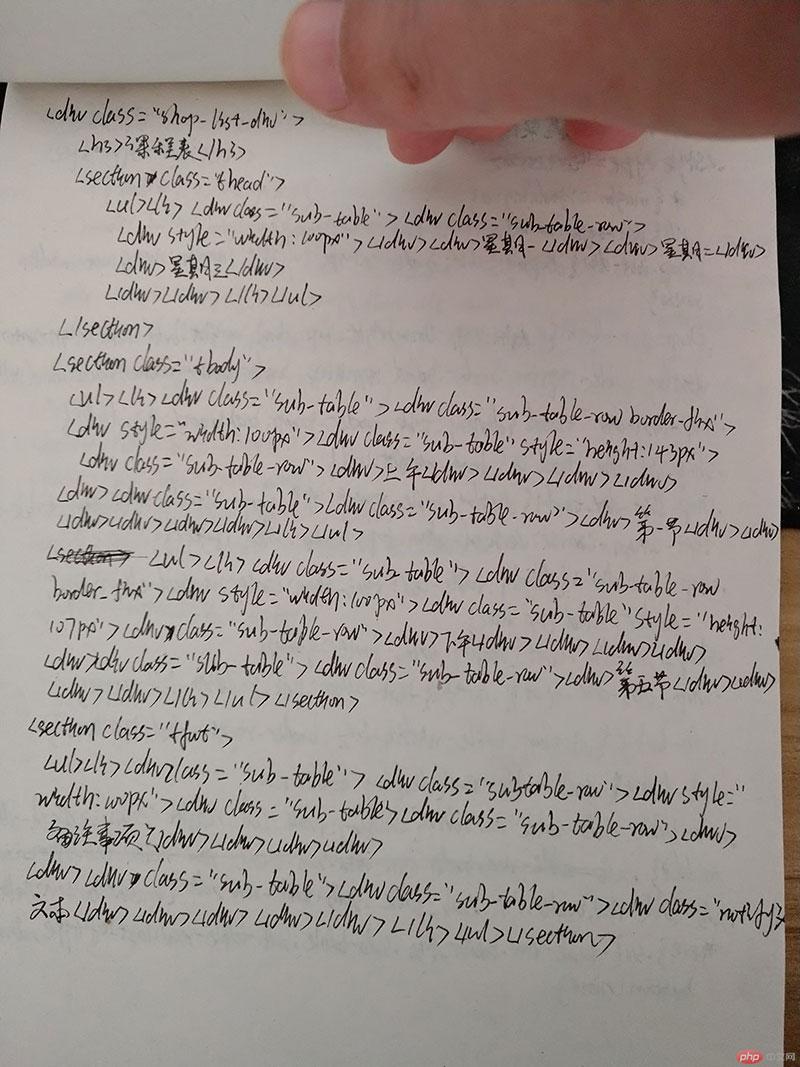 <div class="shop-list-div">
<h3>课程表</h3>
<section class="thead">
<ul><li> <div class="sub-table"> <div class="sub-table-row">
<div style="width:100px"></div><div>星期一</div><div>星期二</div>
<div>星期三</div>
</div></div></li></ul>
</section>
<section class="tbody">
<ul><li><div class="sub-table"><div class="sub-table-row border-fix">
<div style="width:100px"><div class="sub-table" style="height:143px">
<div class="sub-table-row"><div>上午</div></div></div></div>
<div><div class="sub-table"><div class="sub-table-row"><div>第一节</div></div>
</div></div></div></div></li></ul>
<ul><li><div class="sub-table"><div class="sub-table-row
border-fix"><div style="width:100px"><div class="sub-table" style="height:
107px"><div class="sub-table-row"><div>下午</div></div></div></div>
<div><div class="sub-table"><div class="sub-table-row"><div>第五节</div></div>
</div></div></li></ul></section>
<section class="tfoot">
<ul><li><div class="sub-table"><div class="subtable-row"><div style="
width:100px"><div class="sub-table><div class="sub-table-row"><div>
备注事项</div></div></div></div>
<div><div class="sub-table"><div class="sub-table-row"><div class=
文本</div></div></div></div></div></li></ul></section>
php 中文网